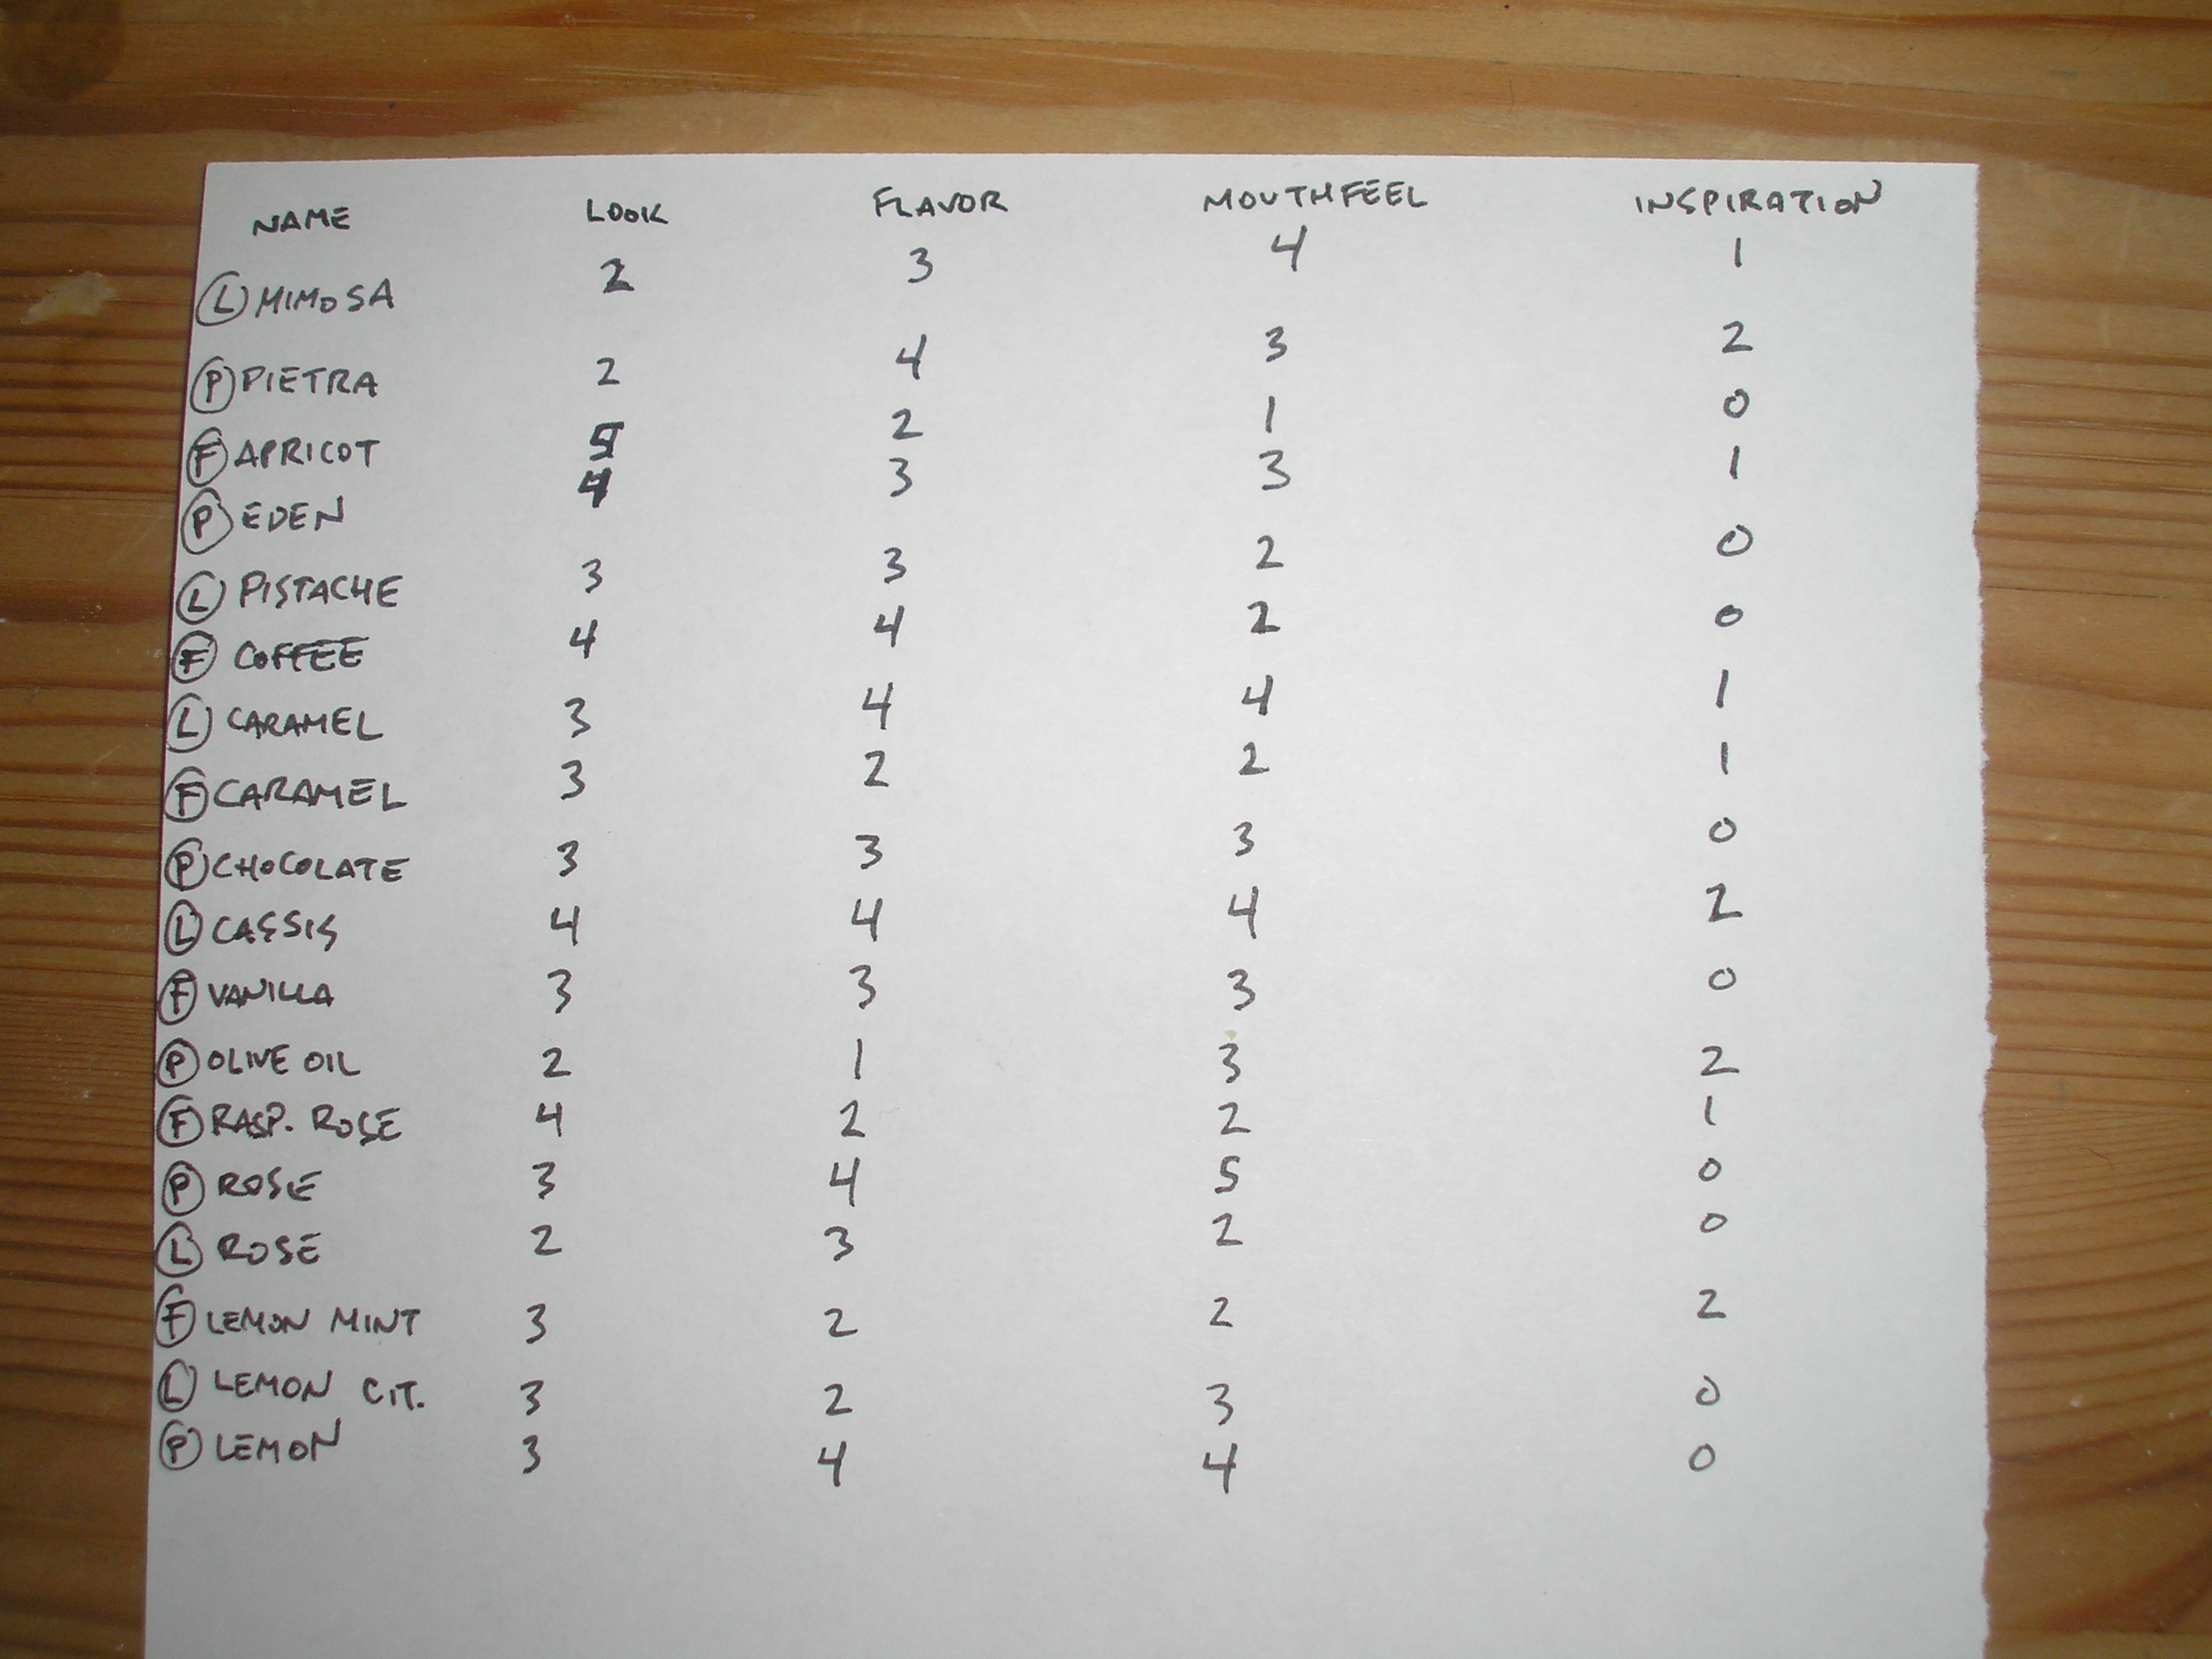 NAME LOOK FLAVOR MOUTHFEEL INSPIRATION
L MIMOSA 2 3 4 1
P PIETRA 2 4 3 2
F APRICOT 5 2 1 0
P EDEN 4 3 3 1
L PISTACHE 3 3 2 0
F COFFEE 4 4 2 0
L CARAMEL 3 4 4 1
F CARAMEL 3 2 2 1
P CHOCOLATE 3 3 3 0
L CASSIS 4 4 4 2
F VANILLA 3 3 3 0
P OLIVE OIL 2 1 3 2
F RASP. ROSE 4 2 2 1
P ROSE 3 4 5 0
L ROSE 2 3 2 0
F LEMON MINT 3 2 2 2
L LEMON CIT. 3 2 3 0
P LEMON 3 4 4 0